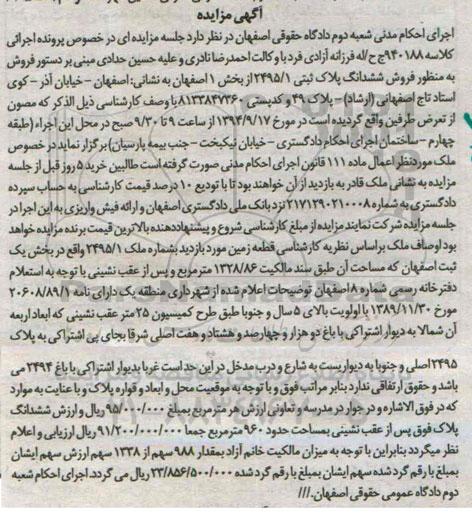 آگهی مزایده
اجرای احکام مدنی شعبه دوم دادگاه حقوقی اصفهان در نظر دارد جلسه مزایده ای در خصوص پرونده اجرائی
کلاسه ۹۴۰۱۸۸ج ح/له فرزانه آزادی فرد با وکالت احمدرضا نادری و علیه حسین حدادی مبنی بر دستور فروش
به منظور فروش ششدانگ پلاک ثبتی ۲۴۹۵/۱ از بخش ۱ اصفهان به نشانی: اصفهان - خیابان آذر - کوی
استاد تاج اصفهانی (ارشاد) - پلاک ۴۹ و کدپستی ۸۱۳۳۸۴۷۳۶۰ با وصف کارشناسی ذیل الذکر که مصون
از تعرض طرفین واقع گردیده است در مورخ ۱۳۹۴/۹/۱۷ از ساعت ۹ تا ۹/۳۰ صبح در محل این اجراء (طبقه
چهارم - ساختمان اجرای احکام دادگستری - خیابان نیکبخت - جنب بیمه پارسیان) برگزار نماید در خصوص
ملک موردنظر اعمال ماده ۱۱۱ قانون اجرای احکام مدنی صورت گرفته است طالبین خرید ۵ روز قبل از جلسه
مزایده به نشانی ملک قادر به بازدید از آن خواهند بود تا با تودیع ۱۰ درصد قیمت کارشناسی به حساب سپرده
دادگستری به شماره ۲۱۷۱۲۹۰۲۱۰۰۰۸ نزد بانک ملی دادگستری اصفهان و ارائه فیش واریزی به این اجرا در
جلسه مزایده شرکت نمایند مزایده از مبلغ کارشناسی شروع و پیشنهاددهنده بالاترین قیمت برنده مزایده خواهد
بود اوصاف ملک براساس نظریه کارشناسی قطعه زمین مورد بازدید بشماره ملک ۲۴۹۵/۱ واقع در بخش یک
ثبت اصفهان که مساحت آن طبق سند مالکیت ۱۳۲۸/۸۶ مترمربع و پس از عقب نشینی با توجه به استعلام
دفترخانه رسمی شماره ۸ اصفهان توضیحات اعلام شده از شهرداری منطقه یک دارای نامه ۲۰۶۰۸/۸۹/۱
مورخ ۱۳۸۹/۱۱/۳۰ با اولویت بالای ۵ سال و جنوبا طبق طرح کمیسیون ۲۵ متر عقب نشینی که ابعاد اربعه
آن شمالا به دیوار اشتراکی با باغ دو هزار و چهارصد و هشتاد و هفت اصلی شرقا بجای پی اشتراکی به پلاک
۲۴۹۵ اصلی و جنوبا به دیواریست به شارع و درب مدخل در این حد است غربا بدیوار اشتراکی با باغ ۲۴۹۴ می
باشد و حقوق ارتفاقی ندارد بنابر مراتب فوق و با توجه به موقعیت محل و ابعاد و قواره پلاک و با عنایت به موارد
که در فوق الاشاره و در جوار در مدرسه و تعاونی ارزش هر مترمربع بمبلغ ۹۵/۰۰۰/۰۰۰ ریال و ارزش ششدانگ
پلاک فوق پس از عقب نشینی بمساحت حدود ۹۶۰ مترمربع جمعا ۹۱/۲۰۰/۰۰۰/۰۰۰ ریال ارزیابی و اعلام
نظر میگردد بنابراین با توجه به میزان مالکیت خانم آزاد بمقدار ۹۸۸ سهم از ۱۳۳۸ سهم ارزش سهم ایشان
بمبلغ با رقم گرد شده سهم ایشان بمبلغ با رقم گرد شده ۲۳/۸۵۶/۵۰۰/۰۰۰ ریال می گردد. اجرای احکام شعبه
دوم دادگاه عمومی حقوقی اصفهان.///